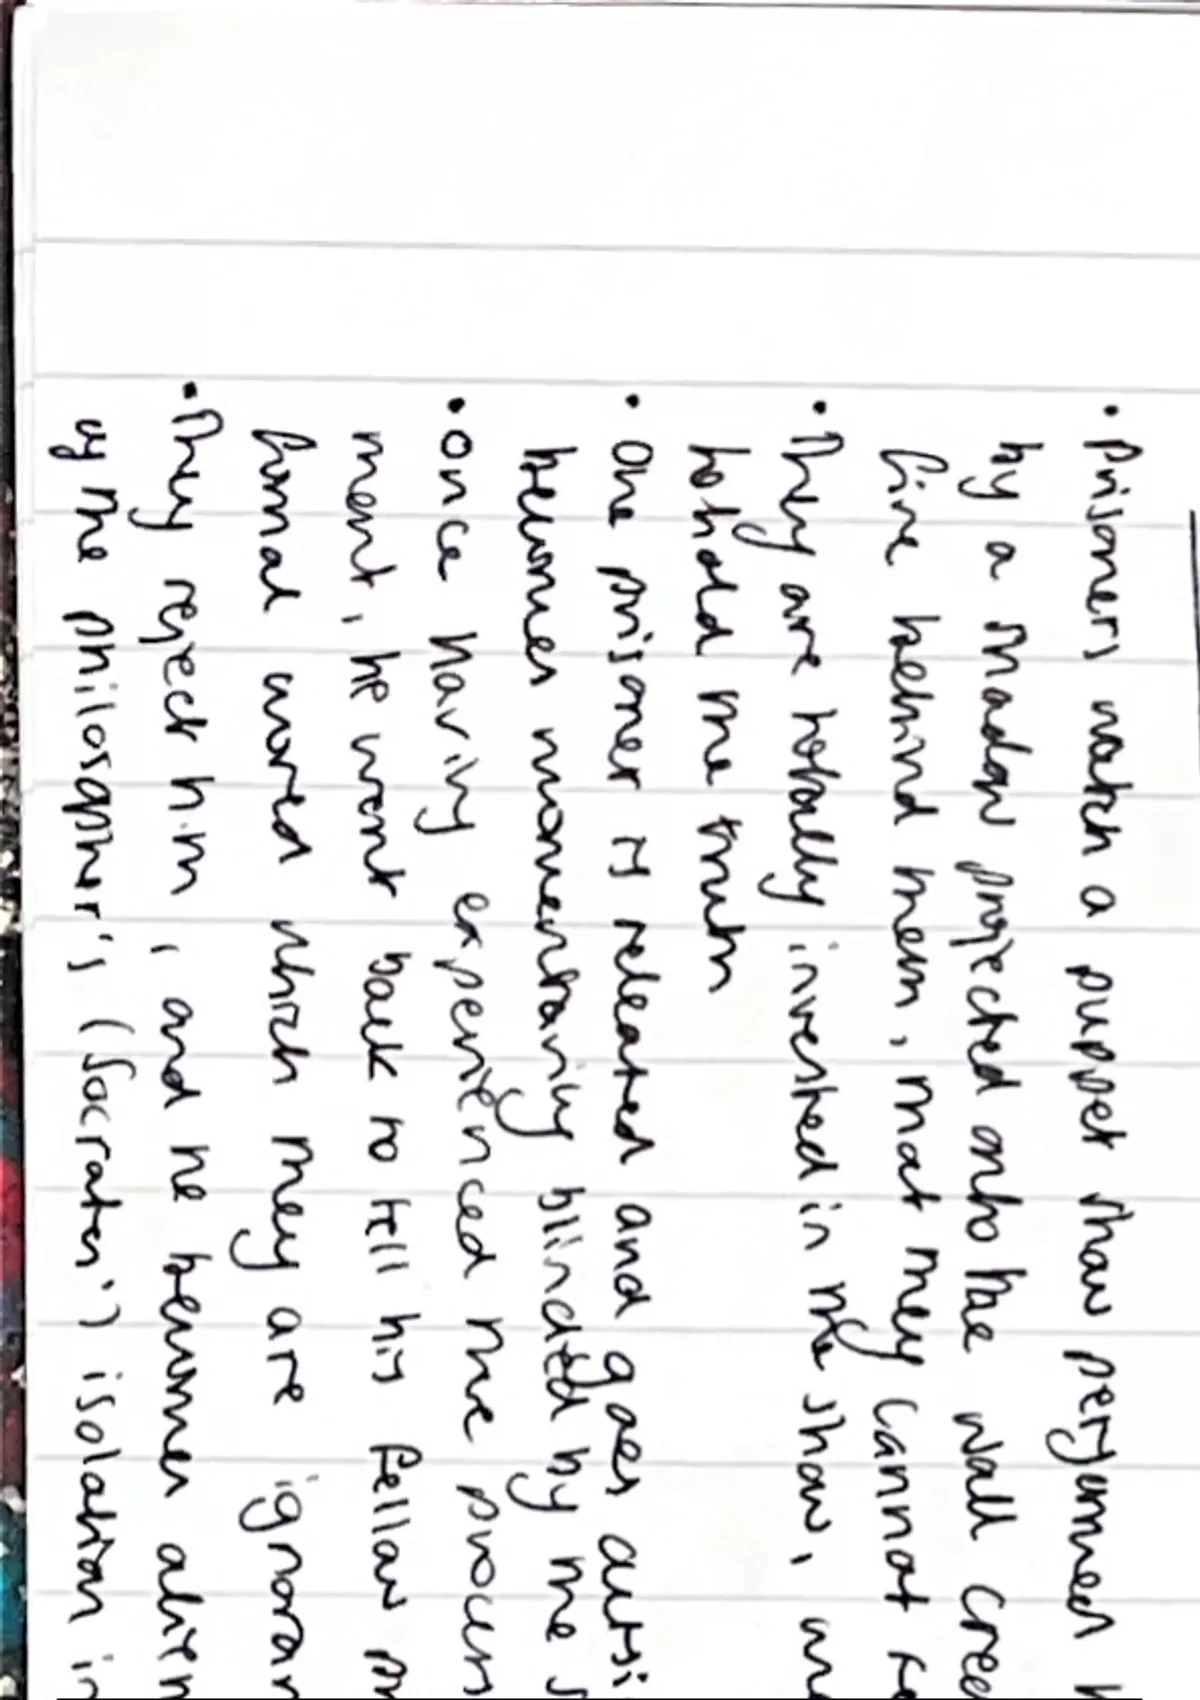 • Prisoners watch a puppet show performed
by a shadow projected onto the wall
fire behind them, that they cannot
• They are totally invested in the show,
to hold the truth
• One prisoner is released and goes
becomes momentarily blinded by the
• Once having experienced the
ment, he went back to tell his fellow
formal world which they are
• They reject him, and he becomes
by the philosopher's (Socrates') isolation in